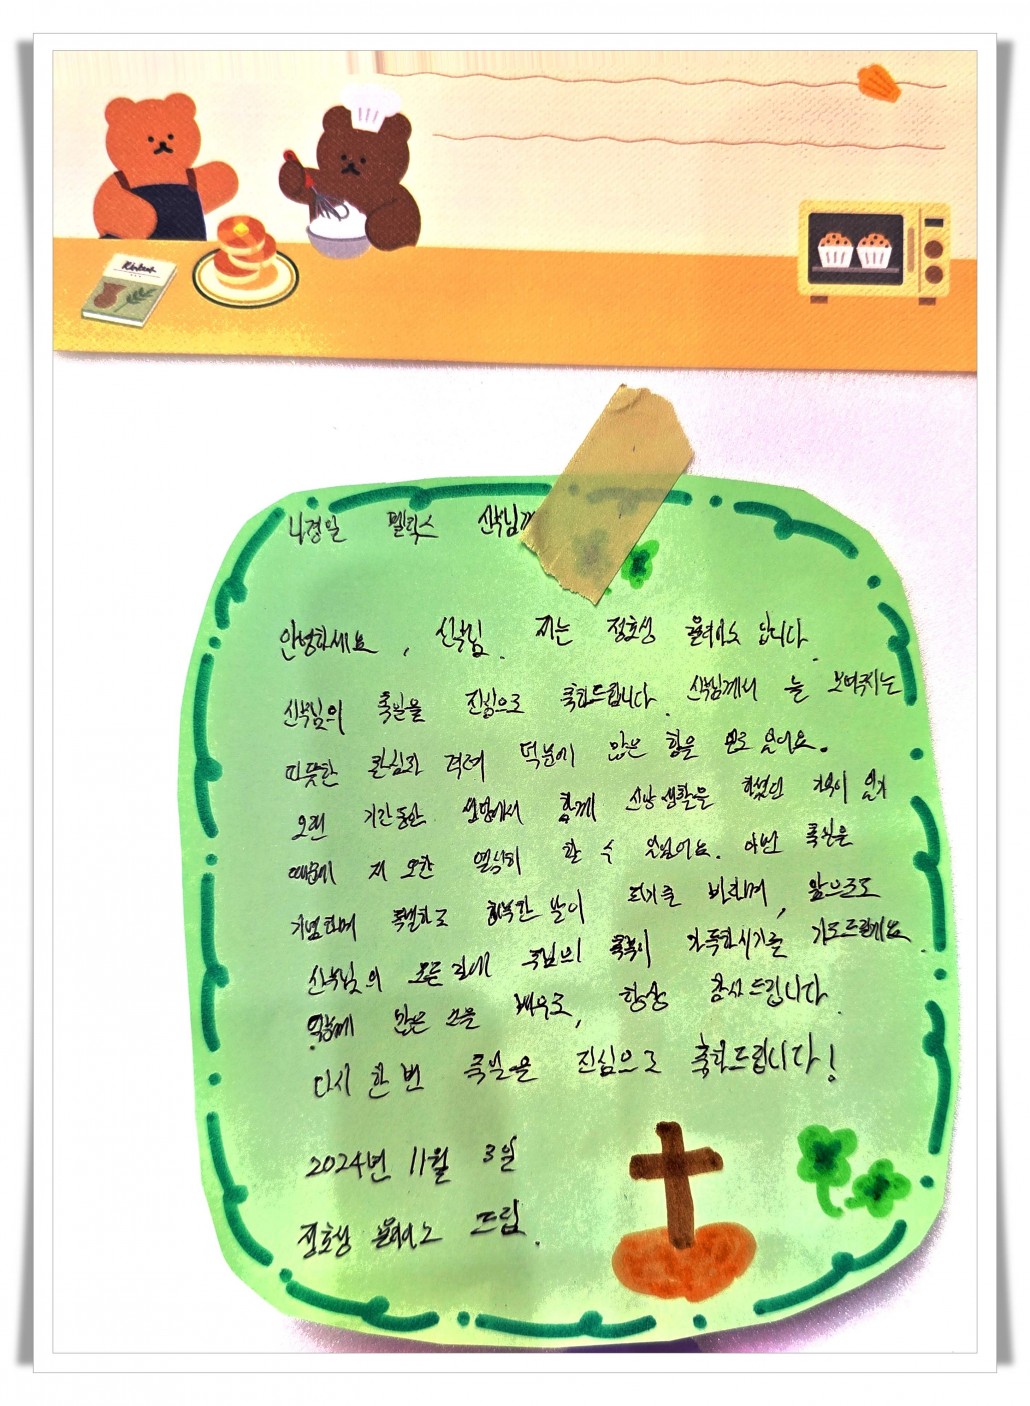 나경일 펠릭스 신부님께
안녕하세요, 신부님. 저는 정호상 율리아노 입니다.
신부님의 축일을 진심으로 축하드립니다. 신부님께서 늘 보여주시는
따뜻한 관심과 격려 덕분에 많은 힘을 얻고 있어요.
오랜 기간동안 성당에서 함께 신앙생활을 하셨던 기억이 있기
때문에 저 또한 열심히 할 수 있었어요. 이번 축일을
기념하며 특별하고 행복한 날이 되기를 바라며, 앞으로도
신부님의 모든 길에 주님의 축복이 가득하시기를 기도드릴게요.
많은 것을 배우고, 항상 감사드립니다.
다시 한 번 축일을 진심으로 축하드립니다!
2024년 11월 3일
정호상 율리아노 드림.